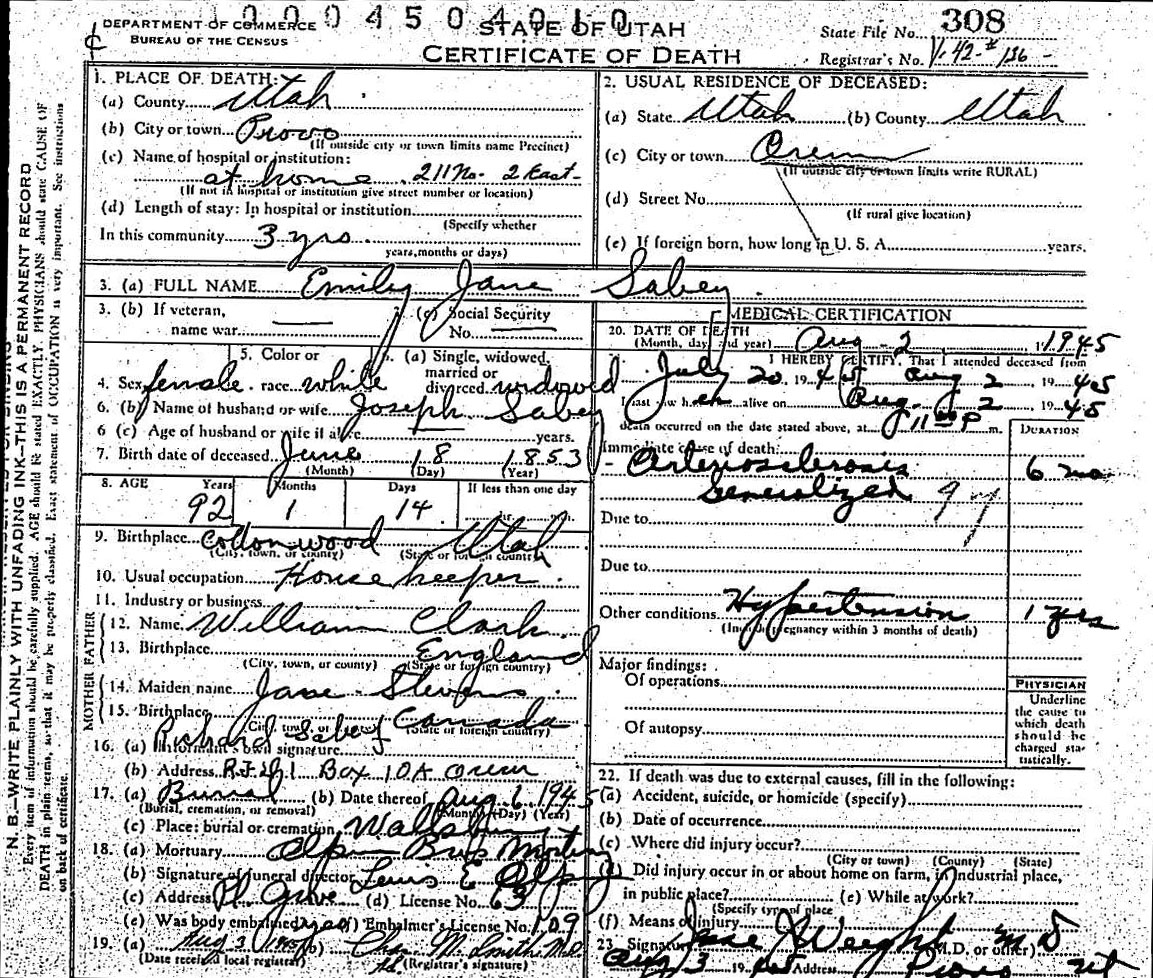 1000450401 0
DEPARTMENT OF COMMERCE
BUREAU OF THE CENSUS
STATE OF UTAH
CERTIFICATE OF DEATH
State File No. 308
Registrar's No. V-42-# 136
N. B.—WRITE PLAINLY WITH UNFADING INK—THIS IS A PERMANENT RECORD
Every item of information should be carefully supplied. AGE should be stated EXACTLY. PHYSICIANS should state CAUSE OF
DEATH in plain terms, so that it may be properly classified. Exact statement of OCCUPATION is very important. See instructions
on back of certificate.
1. PLACE OF DEATH:
(a) County Utah
(b) City or town Provo
(If outside city or town limits name Precinct)
(c) Name of hospital or institution:
at home 211 No. 2 East
(If not in hospital or institution give street number or location)
(d) Length of stay: In hospital or institution
(Specify whether
In this community 3 yrs.
years, months or days)
2. USUAL RESIDENCE OF DECEASED:
(a) State Utah (b) County Utah
(c) City or town Orem
(If outside city or town limits write RURAL)
(d) Street No.
(If rural give location)
(e) If foreign born, how long in U. S. A. years.
3. (a) FULL NAME Emily Jane Sabey
3. (b) If veteran,
name war
3. (c) Social Security
No.
4. Sex female
5. Color or
race white
6. (a) Single, widowed,
married or
divorced widowed
6. (b) Name of husband or wife Joseph Sabey
6 (c) Age of husband or wife if alive years.
7. Birth date of deceased June 18 1853
(Month) (Day) (Year)
8. AGE Years Months Days If less than one day
92 1 14 hr. min.
9. Birthplace Cottonwood Utah
(City, town, or county) (State or foreign country)
10. Usual occupation Housekeeper
11. Industry or business
FATHER
12. Name William Clark
13. Birthplace England
(City, town, or county) (State or foreign country)
MOTHER
14. Maiden name Jane Stevens
15. Birthplace Canada
(City, town, or county) (State or foreign country)
16. (a) Informant's own signature Richard Sabey
(b) Address R.F.D. 1 Box 10A Orem
17. (a) Burial (b) Date thereof Aug 6 1945
(Burial, cremation, or removal) (Month) (Day) (Year)
(c) Place: burial or cremation Wallsburg
18. (a) Mortuary
(b) Signature of funeral director Lewis E
(c) Address Pl. Grove (d) License No. 63
(e) Was body embalmed yes (f) Embalmer's License No. 109
19. (a) Aug 3 1945 (b) Chas M. Smith M.D.
(Date received local registrar) (Registrar's signature)
MEDICAL CERTIFICATION
20. DATE OF DEATH
(Month, day, and year) Aug - 2 1945
I HEREBY CERTIFY, That I attended deceased from
July 20 1945 Aug 2 19 45
I last saw her alive on Aug. 2 19 45
death occurred on the date stated above, at 11 00 P m.
DURATION
Immediate cause of death:
Arteriosclerosis 6 mo
Generalized 9 y
Due to
Due to
Other conditions Hypertension 1 yrs
(Include pregnancy within 3 months of death)
Major findings:
Of operations
Of autopsy
PHYSICIAN
Underline
the cause to
which death
should be
charged sta-
tistically.
22. If death was due to external causes, fill in the following:
(a) Accident, suicide, or homicide (specify)
(b) Date of occurrence
(c) Where did injury occur?
(City or town) (County) (State)
(d) Did injury occur in or about home on farm, in industrial place,
in public place? (e) While at work?
(Specify type of place
(f) Means of injury
23. Signature J. Weight M D (M.D. or other)
Aug 3 19 45 Address Provo Ut